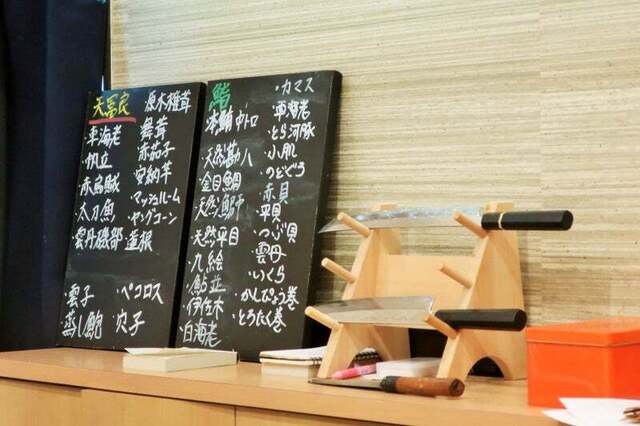 天冨良
原木椎茸
車海老 舞茸
帆立 赤茄子
赤烏賊 安納芋
太刀魚 マッシュルーム
雲丹磯部 ヤングコーン
蓮根
・雲子 ・ペコロス
蒸し鮑 ・穴子
鮨
本鮪中トロ
・天然勘八
・金目鯛
天然鰤
・天然平目
・九絵
・鮎並
・伊佐木
・白海老
・カマス
・車海老
・とら河豚
・小肌
・のどぐろ
・赤貝
・平貝
・つぶ貝
・雲丹
・いくら
・かんぴょう巻
・とろたく巻